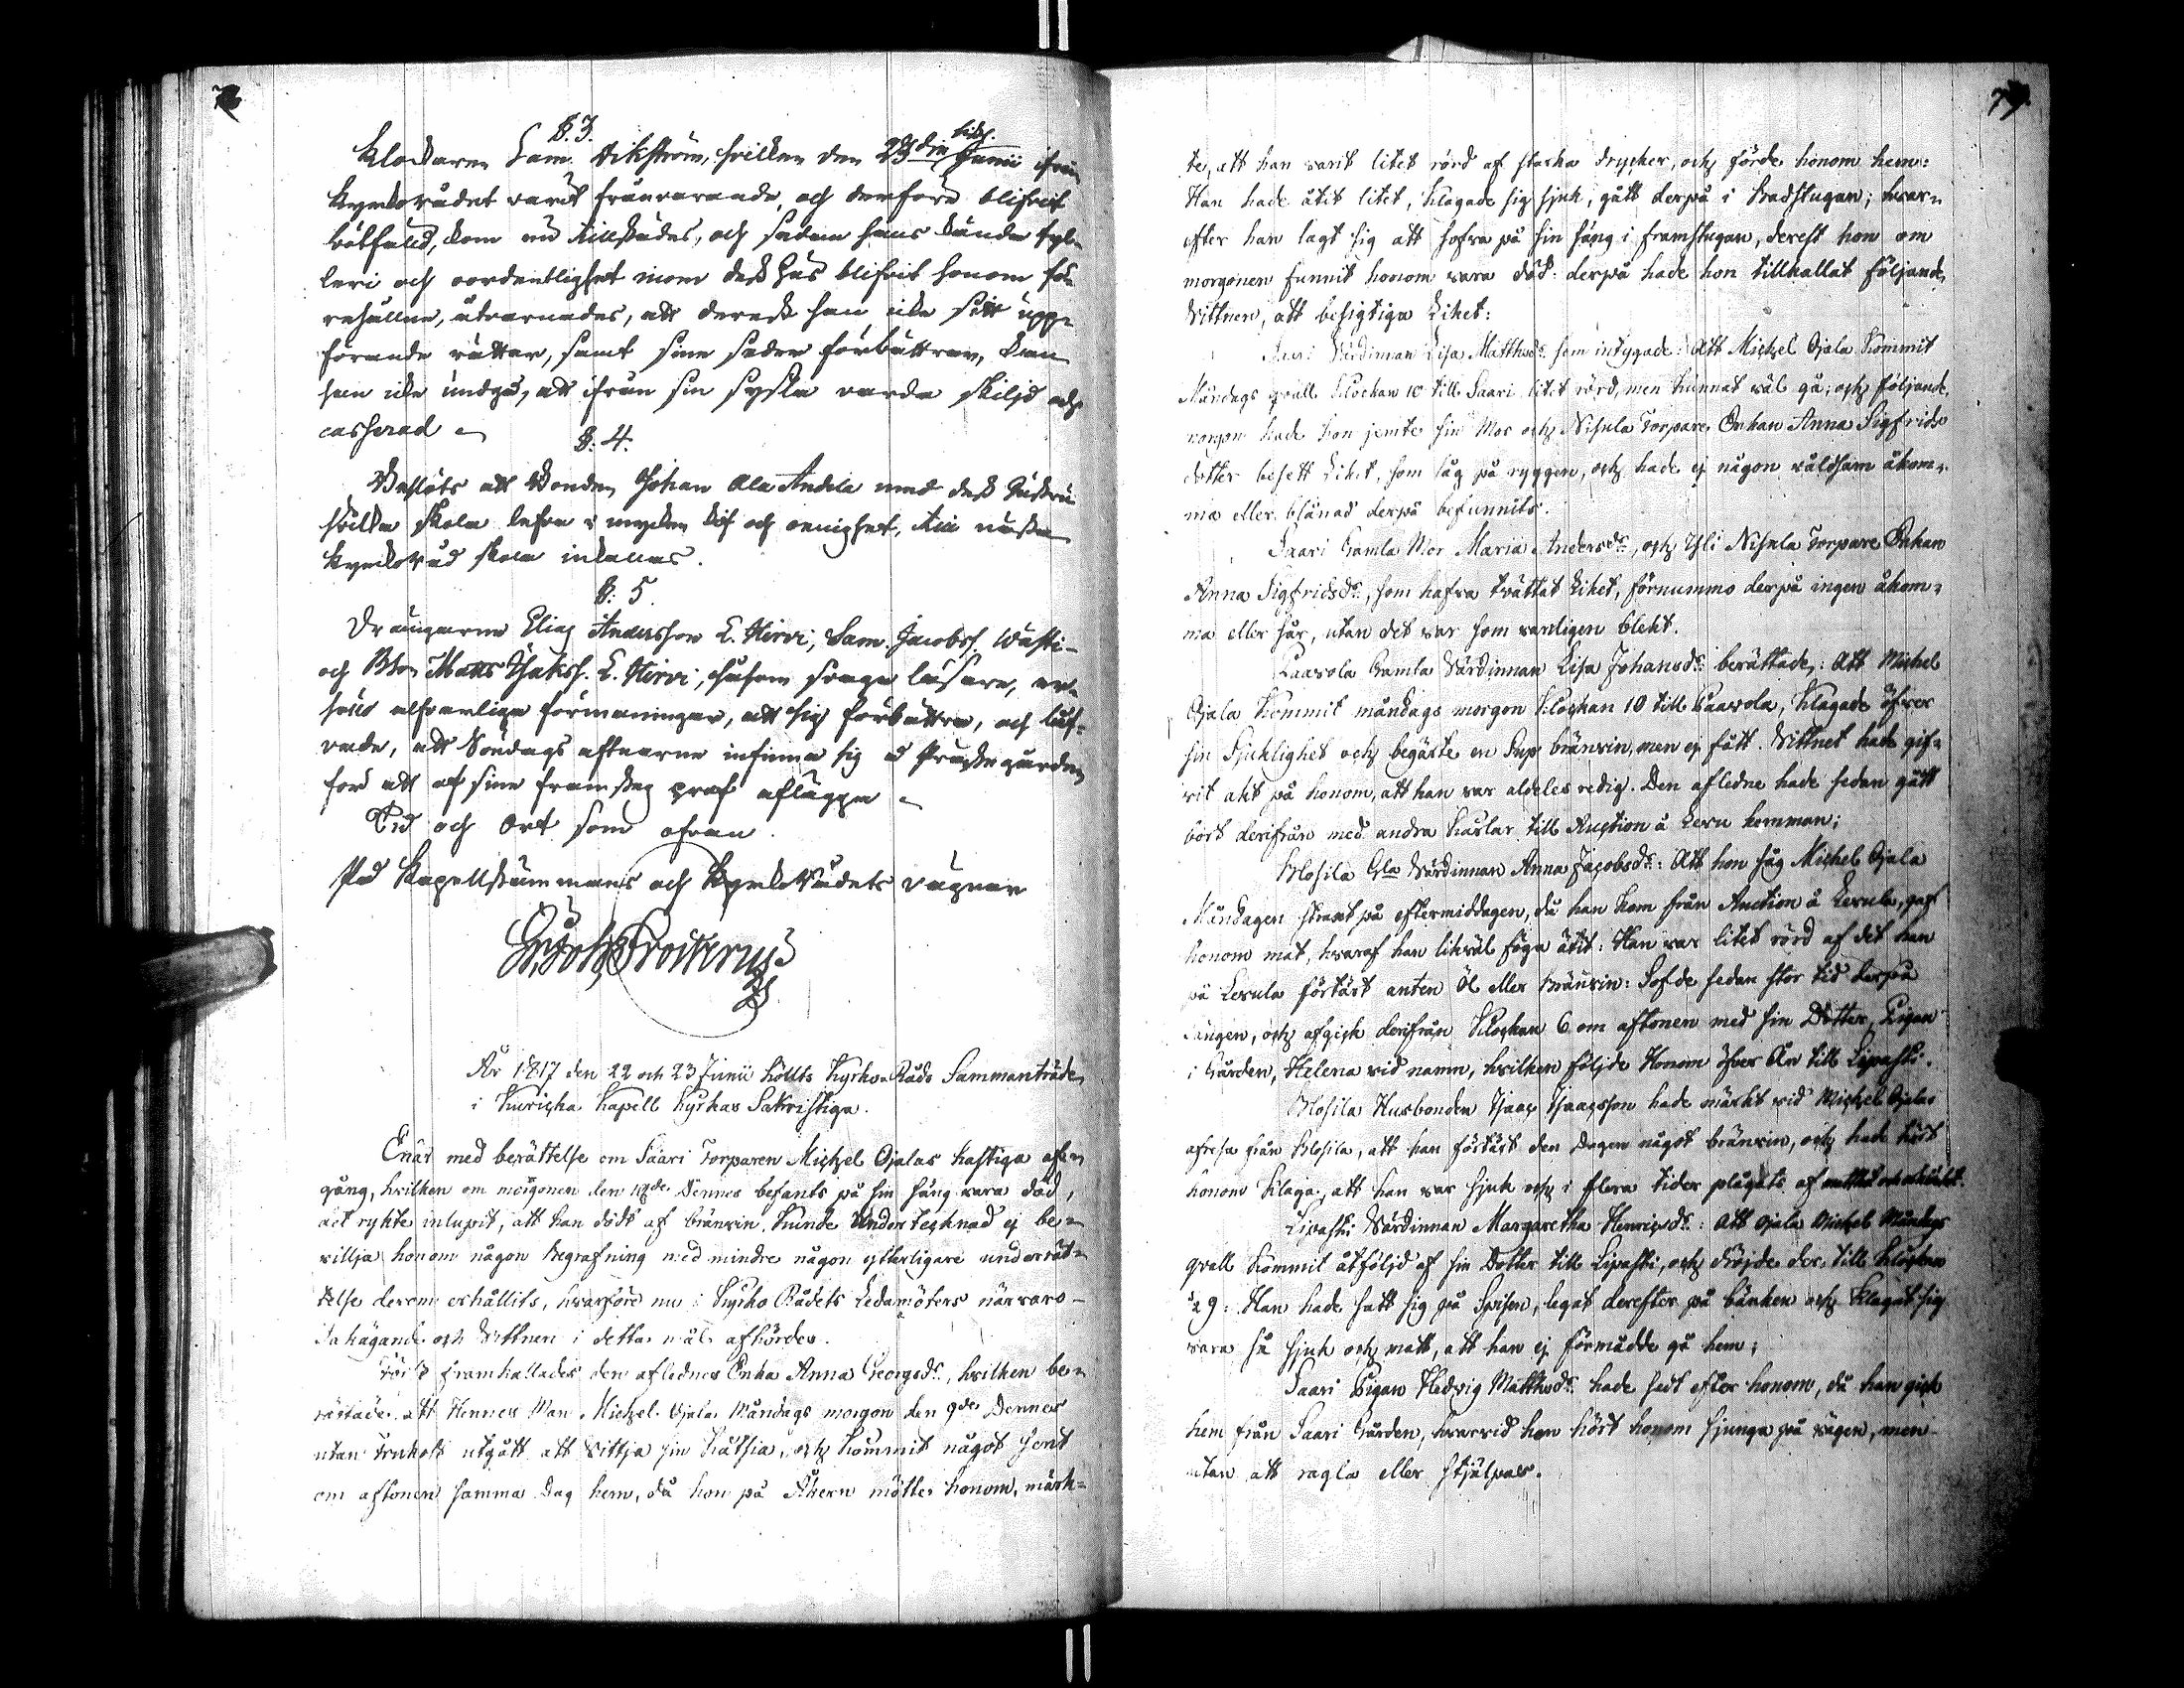 §. 3.
Klockaren Sam. Wikström, hvilken den 23 Junii sidstl. ifrån
Kyrkorådet varit frånvarande, och derföre blifvit
bötfäld, kom nu tillstädes, och sedan hans kända fyl-
leri och oordentlighet inom dess hus blifvit honom fö-
rehållne, åtvarnades, att derest han icke sitt upp-
förande rättar, samt sine seder förbättrar, kan
han icke undgå, att ifrån sin syssla varda skiljd och
casserad
§. 4.
Beslöts att Bonden Johan Ala Andela med dess Hustru
hvilka skola lefva i mycken kif och oenighet, till nästa
Kyrkoråd skola inkallas.
§. 5.
Drängarne Elias Andersson L. Hirvi, Sam. Jacobss.
och Matts Isakss. L. Hirvi, såsom svaga läsare, er-
höllo alfvarliga förmaningar, att sig förbättra, och låf-
vade, att Söndags aftnarne infinna sig å Prästegården
för att af sine framsteg prof aflägga
Tid och Ort som ofvan.
På Kapellstämmans och Kyrko Rådets vägnar
Joh. Frosterus
År 1817 den 22 och 23 Junii hölts Kyrko-Råds Sammanträde
i Kuricka Kapell Kyrkas Sakristiga.
Enär med berättelse om Saari Torparen Michel Ojalas hastiga afle-
gång, hvilken om morgonen den 10de Dennes befants på sin säng vara död,
det rykte inlupit, att han dödt af bränvin, kunde Undertecknad ej be-
villja honom någon Begrafning med mindre någon ytterligare underrät-
telse derom erhållits, hvarföre nu i Kyrko Rådets Ledamöters närvaro
Sakägande och Vittnen i detta mål afhördes.
Först framkallades den aflednes Enka Anna Georgsdr., hvilken be-
rättade att Hennes Man Michel Ojala Måndags morgon den 9de Dennes
utan frukost utgått att vittja sin Katsia, och kommit något sent
om aftonen samma Dag hem, då hon på Åkern mötte honom, märk-
te, att han varit litet rörd af starka drycker, och förde honom hem:
Han hade ätit litet, klagade sig sjuk, gått derpå i Badstugan; hvar-
efter han lagt sig att sofva på sin säng i framstugan, derest hon om
morgonen funnit honom vara död: derpå hade hon tillkallat följande
Vittnen, att besigtiga Liket:
Saari Värdinnan Lisa Matthsdr. som intygade: Att Michel Ojala kommit
Måndags qväll klockan 10 till Saari litet rörd, men kunnat väl gå; och följande
morgon hade hon jemte sin Mor och Nisula Torpare Enkan Anna Sigfrids
dotter besett Liket, som låg på ryggen, och hade ej någon våldsam åkom-
ma eller blånad derpå befunnits.
Saari Gamla Mor Maria Andersdr., och Yli Nisula Torpare Enkan
Anna Sigfridsdr., som hafva tvättat Liket, förnummo derpå ingen åkom-
ma eller sår, utan det var som vanligen blekt.
Paavola Gamla Värdinnan Lisa Johansdr. berättade: Att Michel
Ojala kommit måndags morgon klockan 10 till Paavola, klagade öfver
sin Sjuklighet och begärte en Sup bränvin, men ej fått. Vittnet hade gif-
vit akt på honom, att han var aldeles redig. Den afledne hade sedan gått
bort derifrån med andra karlar till Auction å Levu hemman;
Blosila Gla Värdinnan Anna Jacobsdr.: Att hon såg Michel Ojala
Måndagen straxt på eftermiddagen, då han kom från Auction å Levula, gaf
honom mat, hvaraf han likväl föga ätit: Han var litet rörd af det han
på Levula förtärt anten Öl eller Bränvin: Sofde sedan stor tid derpå
sängen, och afgick derifrån klockan 6 om aftonen med sin Dotter, Pigan
i Gården, Helena vid namn, hvilken följde Honom öfver Ån till Lipasti.
Blosila Husbonden Isaac Isaacsson hade märkt vid Michel Ojalas
afresa från Blosila, att han förtärt den Dagen något bränvin, och hade hört
honom klaga, att han var sjuk och i flera tider plågats af
Lipasti Värdinnan Margaretha Henricsdr.: Att Ojala Michel Måndags
qväll kommit åtföljd af sin Dotter till Lipasti, och dröjde der till klockan
1/2 9: Han hade satt sig på Spisen, legat derefter på bänken och klagat sig
vara så sjuk och matt, att han ej förmådde gå hem;
Saari Pigan Hedvig Matthsdr. hade sedt efter honom, då han gick
hem från Saari Gården, hvarvid hon hört honom sjunga på vägen, men
utan att ragla eller stjälpas.